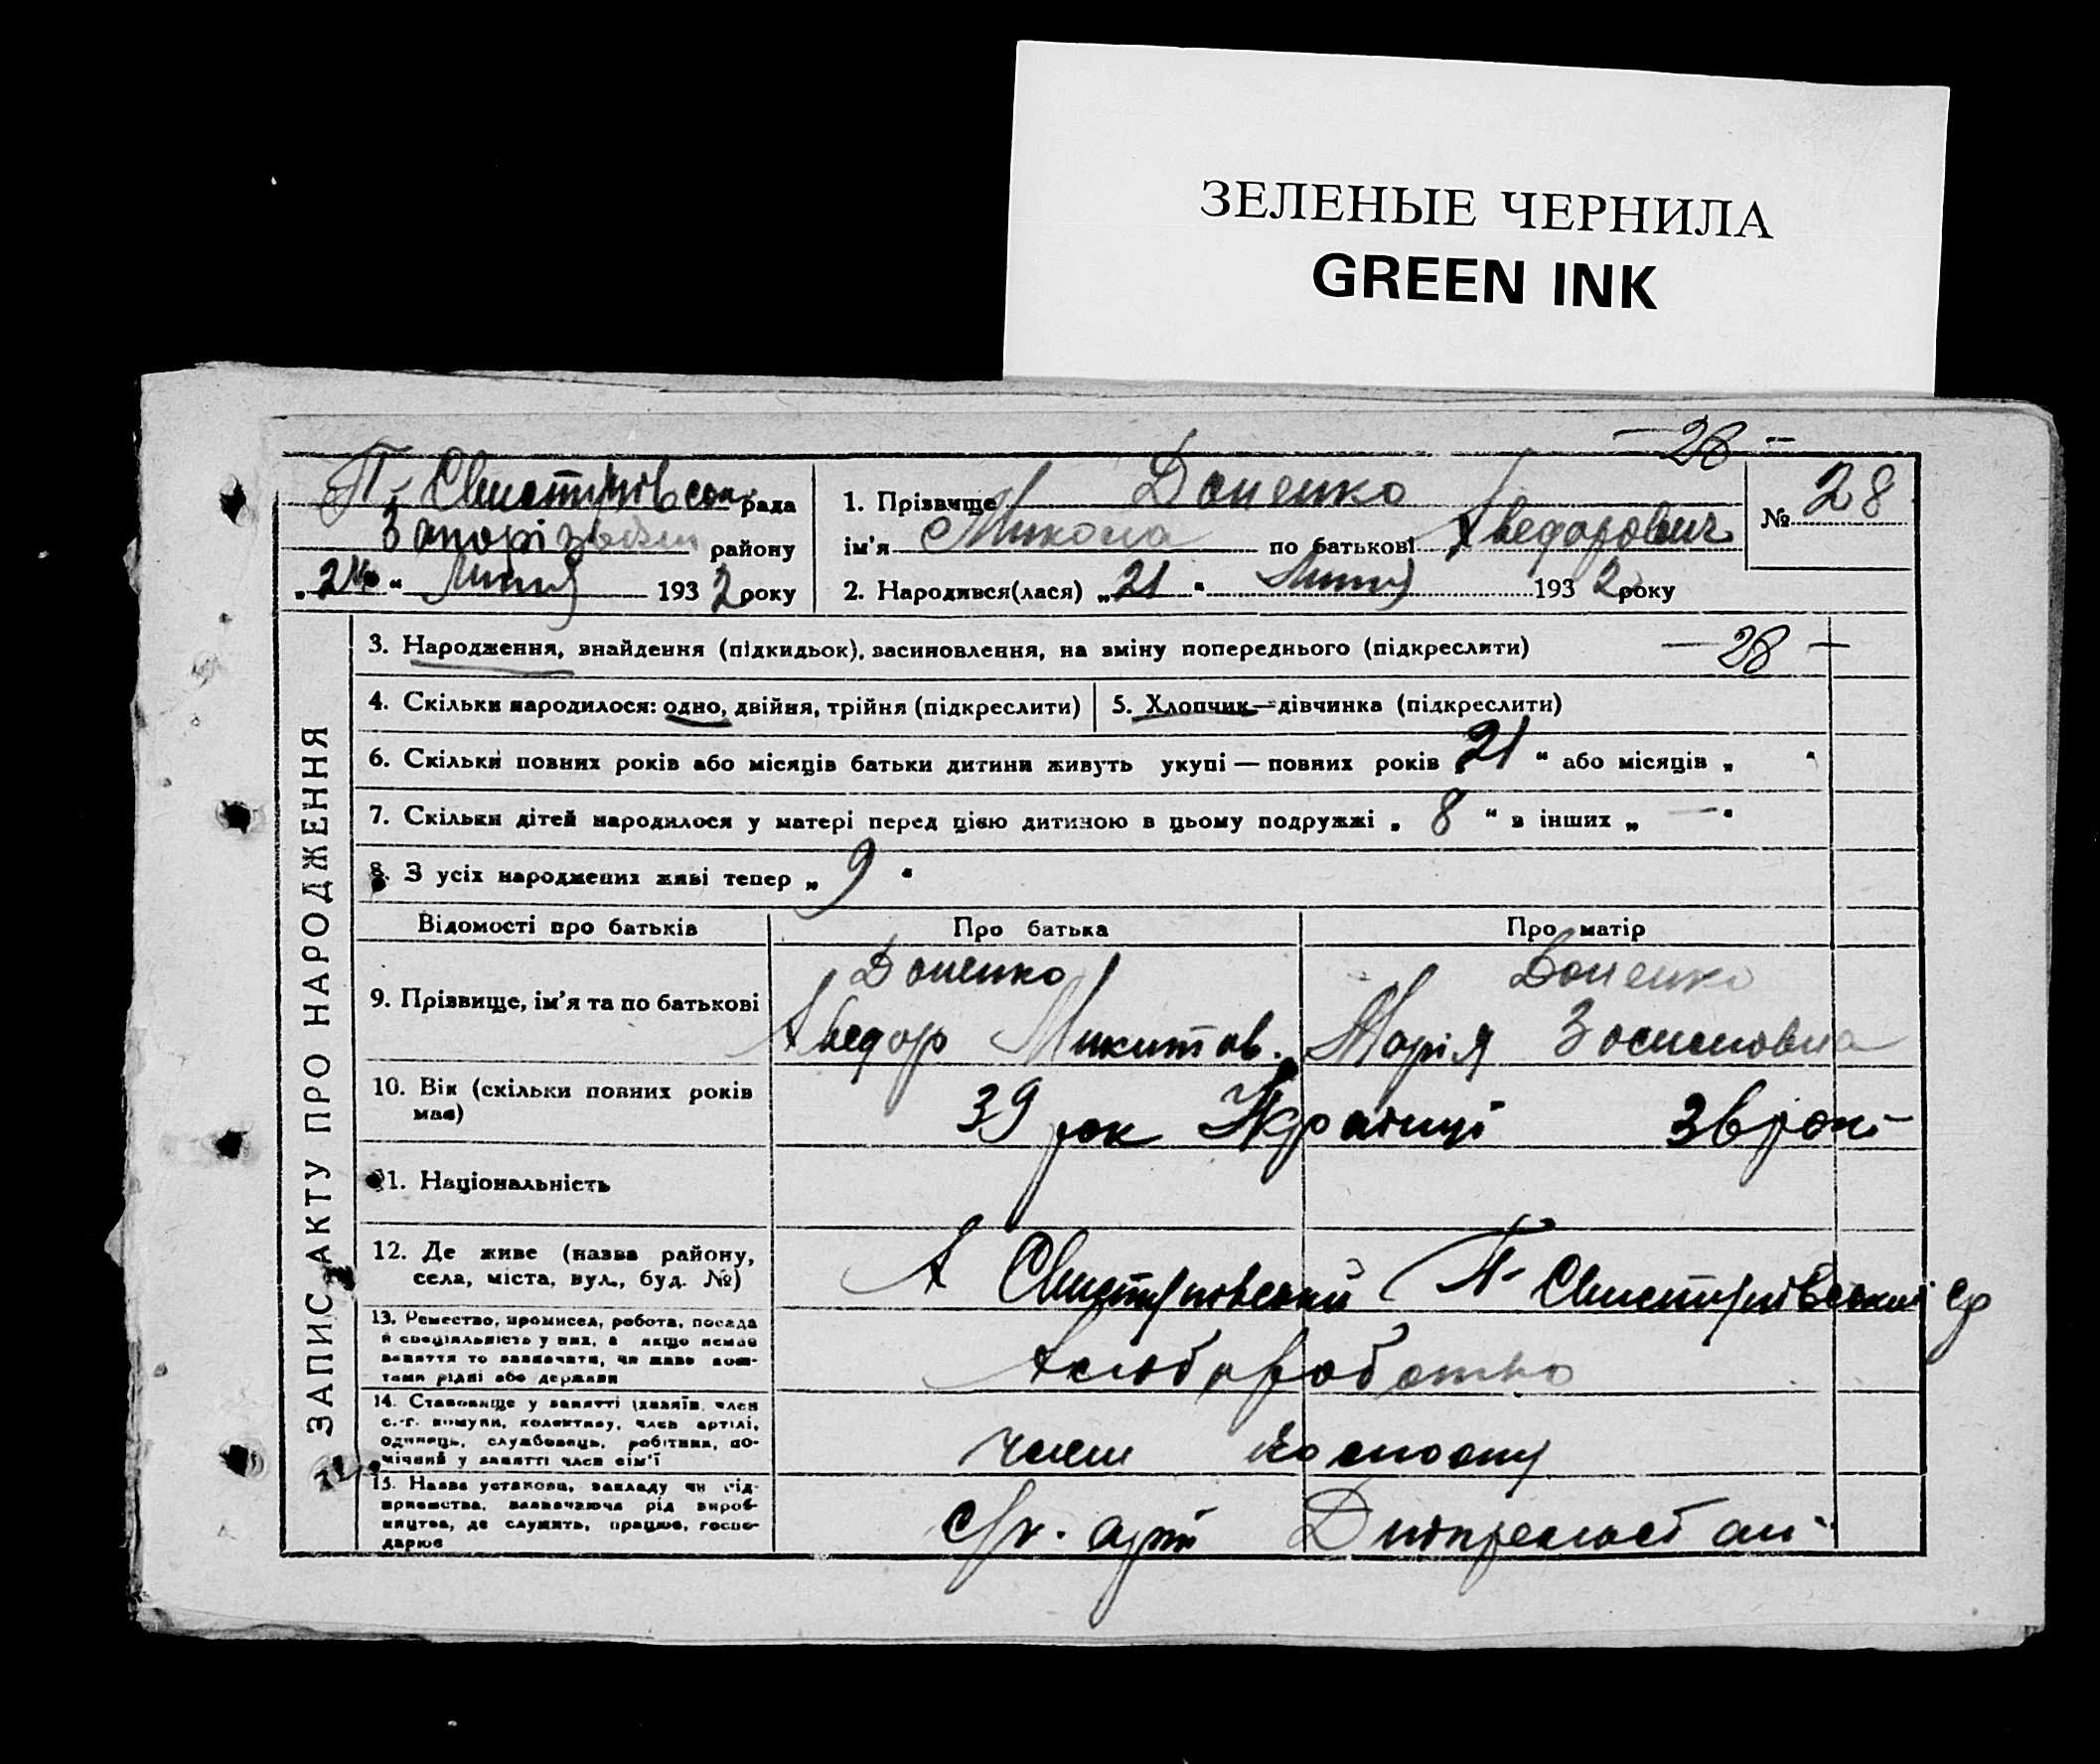 ЗЕЛЕНЫЕ ЧЕРНИЛА
GREEN INK
— 28 —
рада
Запорізьким району
„24“ Липня 1932 року
1. Прізвище Доценко
ім'я Микола по батькові Хведорович
№ 28
2. Народився(лася) „21“ Липня 1932 року
ЗАПИС АКТУ ПРО НАРОДЖЕННЯ
3. Народження, знайдення (підкидьок), засиновлення, на зміну попереднього (підкреслити) — 28 —
4. Скільки народилося: одно, двійня, трійня (підкреслити)
5. Хлопчик—дівчинка (підкреслити)
6. Скільки повних років або місяців батьки дитини живуть укупі — повних років „21“ або місяців „ “
7. Скільки дітей народилося у матері перед цією дитиною в цьому подружжі „8“ в інших „—“
8. З усіх народжених живі тепер „9“
Відомості про батьків
Про батька
Про матір
9. Прізвище, ім'я та по батькові
Доценко
Хведор Микитов.
Доценко
Марія
10. Вік (скільки повних років
має)
39 рок Українці
36 рокі
11. Національність
12. Де живе (назва району,
села, міста, вул., буд. №)
13. Ремество, промисел, робота, посада
й спеціяльність у них, а якщо немає
заняття то зазначати, чи живе кош-
тами рідні або держави
Хліборобство
14. Становище у занятті (хазяїн, член
с.-г. комуни, колективу, член артілі,
одинець, службовець, робітник, по-
мічний у занятті член сім'ї
член колгоспу
15. Назва установи, закладу чи під-
приємства, зазначаючи рід вироб-
ництва, де служить, працює, госпо-
дарює
арт